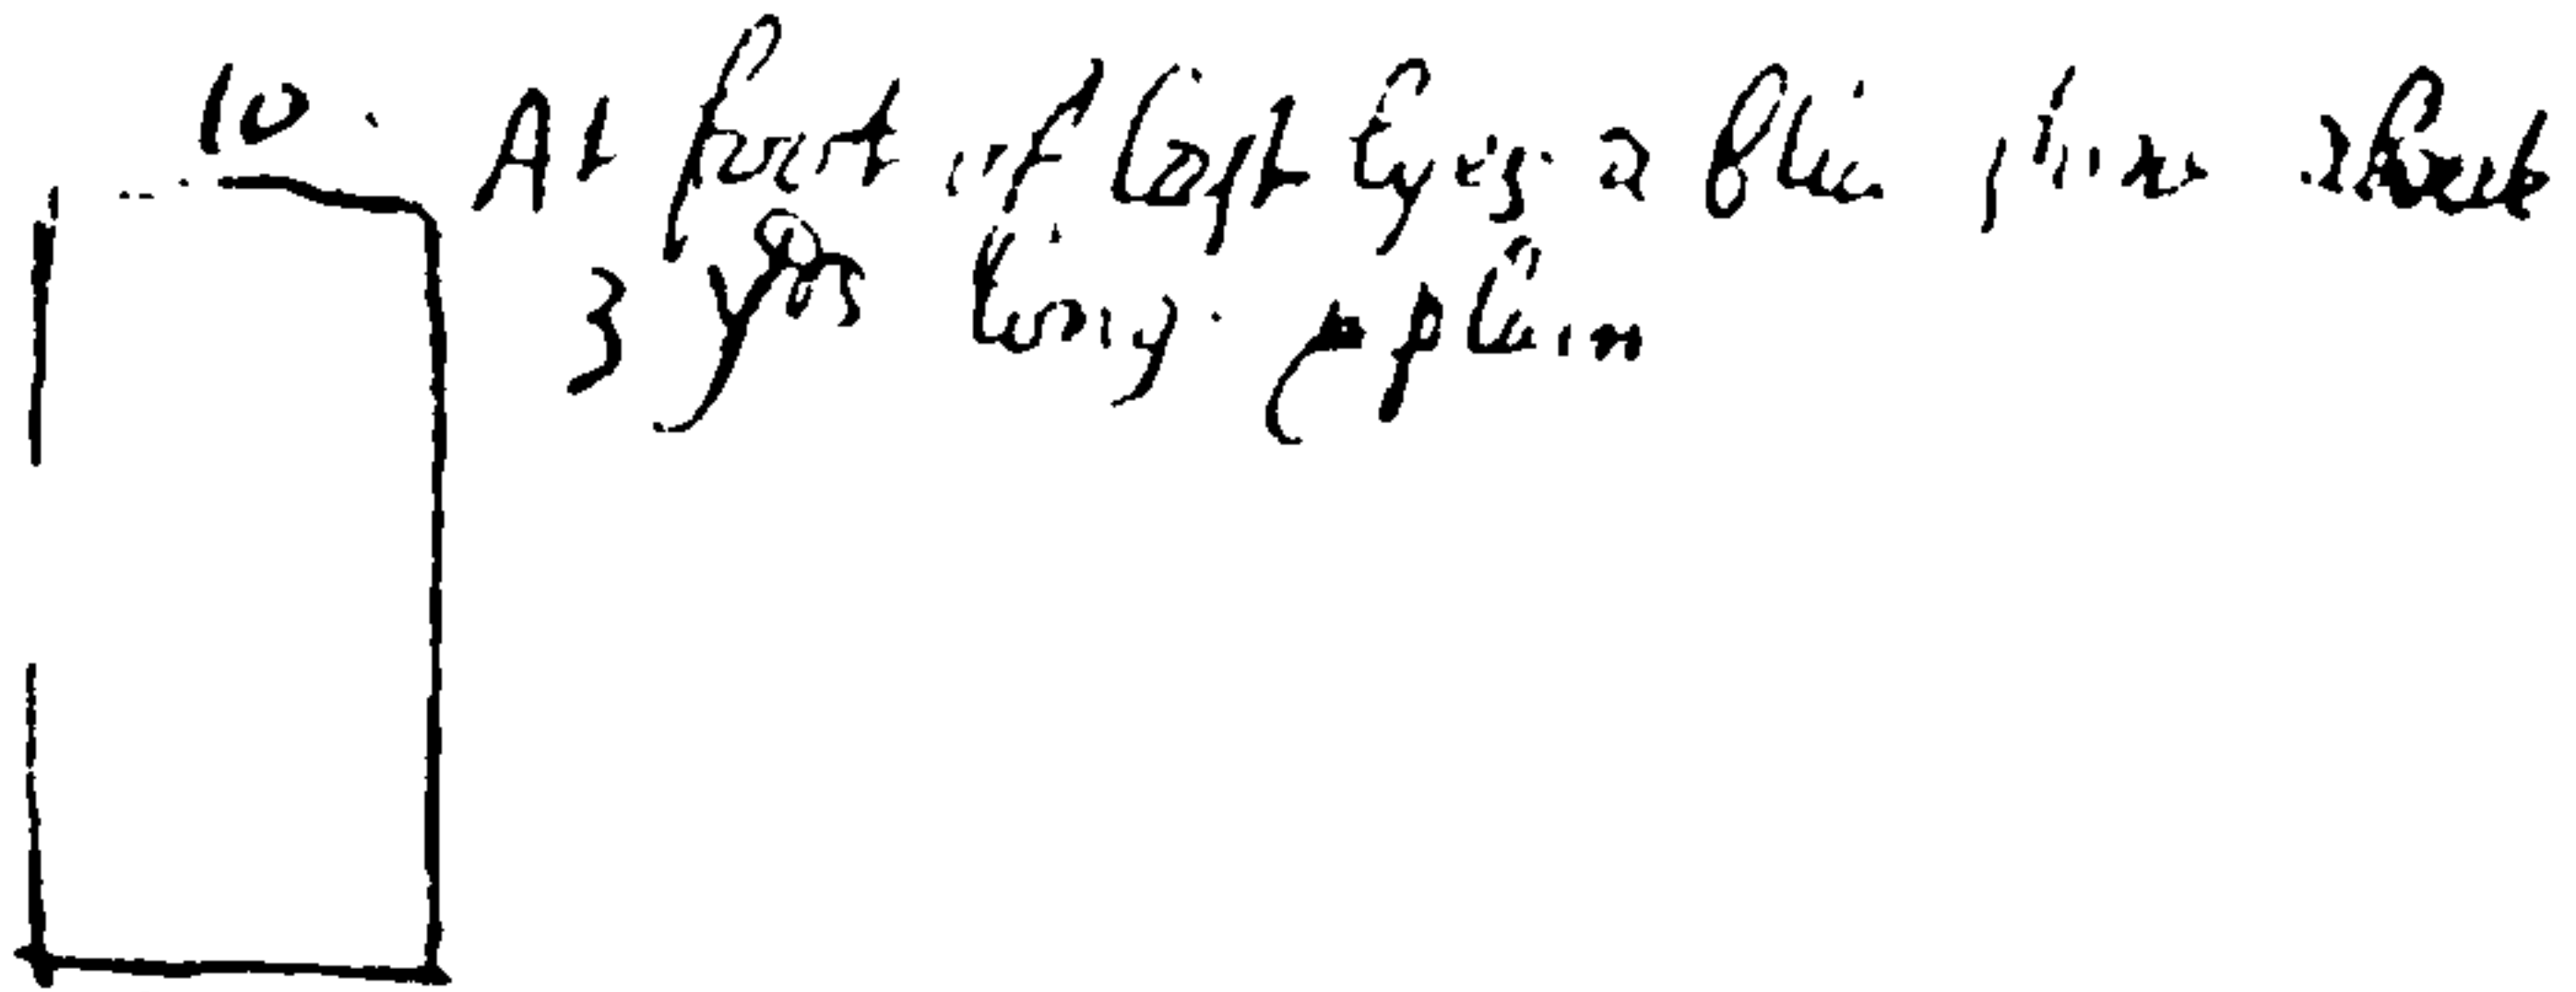 10. At foot of last Eyes a blue stone about
3 yds long. plain